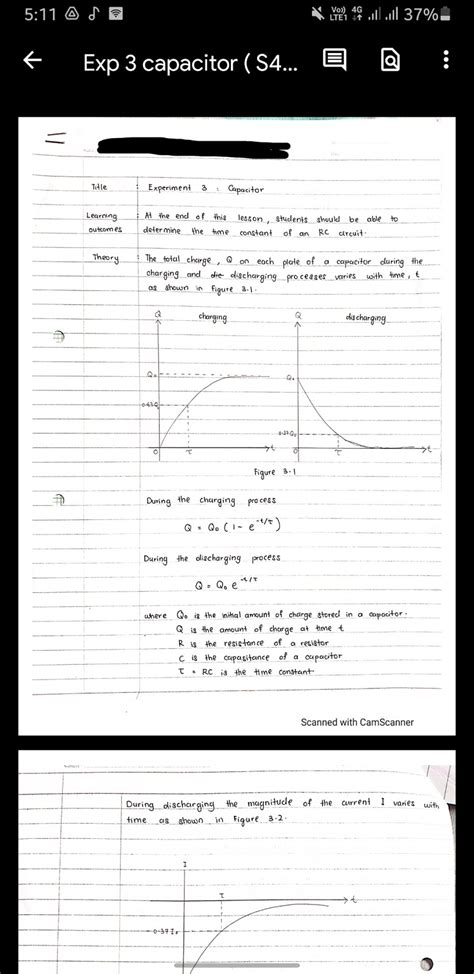 5:11 Vo)) 4G LTE1 37%
Exp 3 capacitor ( S4...
Title : Experiment 3 : Capacitor
Learning outcomes : At the end of this lesson, students should be able to
determine the time constant of an RC circuit.
Theory : The total charge, Q on each plate of a capacitor during the
charging and discharging processes varies with time, t
as shown in Figure 3.1.
Q charging Q discharging
Q₀ Q₀
0.63Q₀
0.37Q₀
0 τ t 0 τ t
Figure 3.1
During the charging process
Q = Q₀ (1 - e^-t/τ)
During the discharging process
Q = Q₀ e^-t/τ
where Q₀ is the initial amount of charge stored in a capacitor.
Q is the amount of charge at time t
R is the resistance of a resistor
C is the capasitance of a capacitor
τ = RC is the time constant.
Scanned with CamScanner
During discharging the magnitude of the current I varies with
time as shown in Figure 3.2.
I
τ t
-0.37 I₀